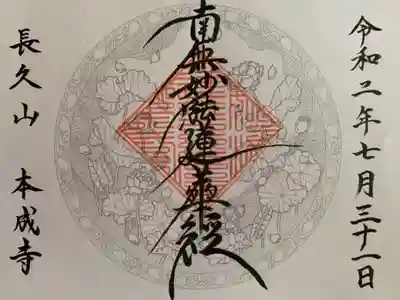 令和二年七月三十一日
南無妙法蓮華経
長久山 本成寺